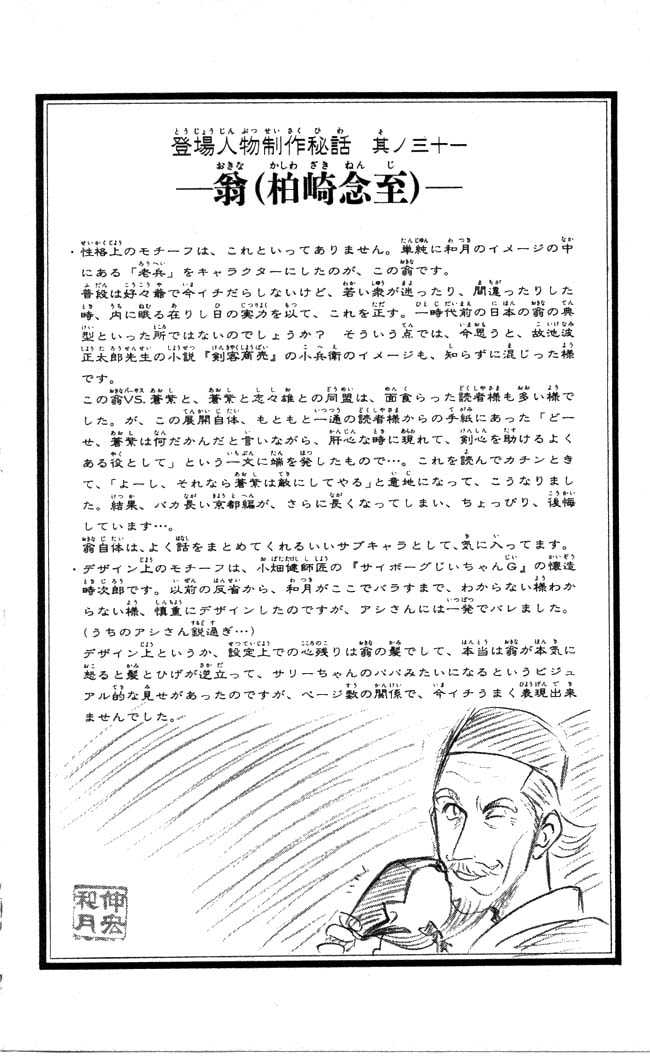 登場人物制作秘話　其ノ三十一
―翁(柏崎念至)―
・性格上のモチーフは、これといってありません。単純に和月のイメージの中
にある「老兵」をキャラクターにしたのが、この翁です。
普段は好々爺で今イチだらしないけど、若い衆が迷ったり、間違ったりした
時、内に眠る在りし日の実力を以て、これを正す。一時代前の日本の翁の典
型といった所ではないのでしょうか？　そういう点では、今思うと、故池波
正太郎先生の小説『剣客商売』の小兵衛のイメージも、知らずに混じった様
です。
この翁VS.蒼紫と、蒼紫と志々雄との同盟は、面食らった読者様も多い様で
した。が、この展開自体、もともと一通の読者様からの手紙にあった「どー
せ、蒼紫は何だかんだと言いながら、肝心な時に現れて、剣心を助けるよく
ある役として」という一文に端を発したもので…。これを読んでカチンとき
て、「よーし、それなら蒼紫は敵にしてやる」と意地になって、こうなりまし
た。結果、バカ長い京都編が、さらに長くなってしまい、ちょっぴり、後悔
しています…。
翁自体は、よく話をまとめてくれるいいサブキャラとして、気に入ってます。
・デザイン上のモチーフは、小畑健師匠の『サイボーグじいちゃんG』の懐造
時次郎です。以前の反省から、和月がここでバラすまで、わからない様わか
らない様、慎重にデザインしたのですが、アシさんには一発でバレました。
(うちのアシさん鋭過ぎ…)
デザイン上というか、設定上での心残りは翁の髪でして、本当は翁が本気に
怒ると髪とひげが逆立って、サリーちゃんのパパみたいになるというビジュ
アル的な見せがあったのですが、ページ数の関係で、今イチうまく表現出来
ませんでした。
和月
伸宏